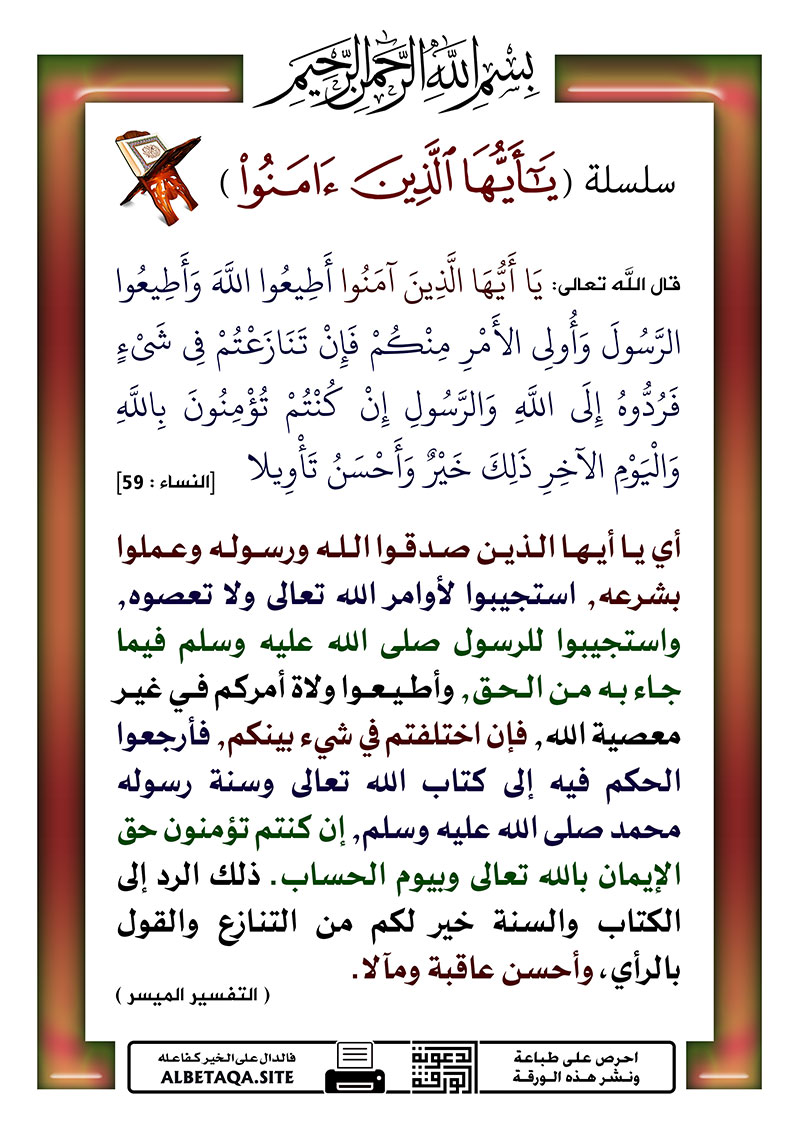 بِسْمِ اللَّهِ الرَّحْمَٰنِ الرَّحِيمِ
سلسلة ( يَٰٓأَيُّهَا ٱلَّذِينَ ءَامَنُواْ )
قال الله تعالى: يَا أَيُّهَا الَّذِينَ آمَنُوا أَطِيعُوا اللَّهَ وَأَطِيعُوا
الرَّسُولَ وَأُولِي الأَمْرِ مِنْكُمْ فَإِنْ تَنَازَعْتُمْ فِي شَيْءٍ
فَرُدُّوهُ إِلَى اللَّهِ وَالرَّسُولِ إِنْ كُنْتُمْ تُؤْمِنُونَ بِاللَّهِ
وَالْيَوْمِ الآخِرِ ذَلِكَ خَيْرٌ وَأَحْسَنُ تَأْوِيلا [النساء : 59]
أي يا أيها الذين صدقوا الله ورسوله وعملوا
بشرعه, استجيبوا لأوامر الله تعالى ولا تعصوه,
واستجيبوا للرسول صلى الله عليه وسلم فيما
جاء به من الحق, وأطيعوا ولاة أمركم في غير
معصية الله, فإن اختلفتم في شيء بينكم, فأرجعوا
الحكم فيه إلى كتاب الله تعالى وسنة رسوله
محمد صلى الله عليه وسلم, إن كنتم تؤمنون حق
الإيمان بالله تعالى وبيوم الحساب. ذلك الرد إلى
الكتاب والسنة خير لكم من التنازع والقول
بالرأي، وأحسن عاقبة ومآلا.
( التفسير الميسر )
احرص على طباعة
ونشر هذه الورقة
الورقة
الدعوية
فالدال على الخير كفاعله
ALBETAQA.SITE